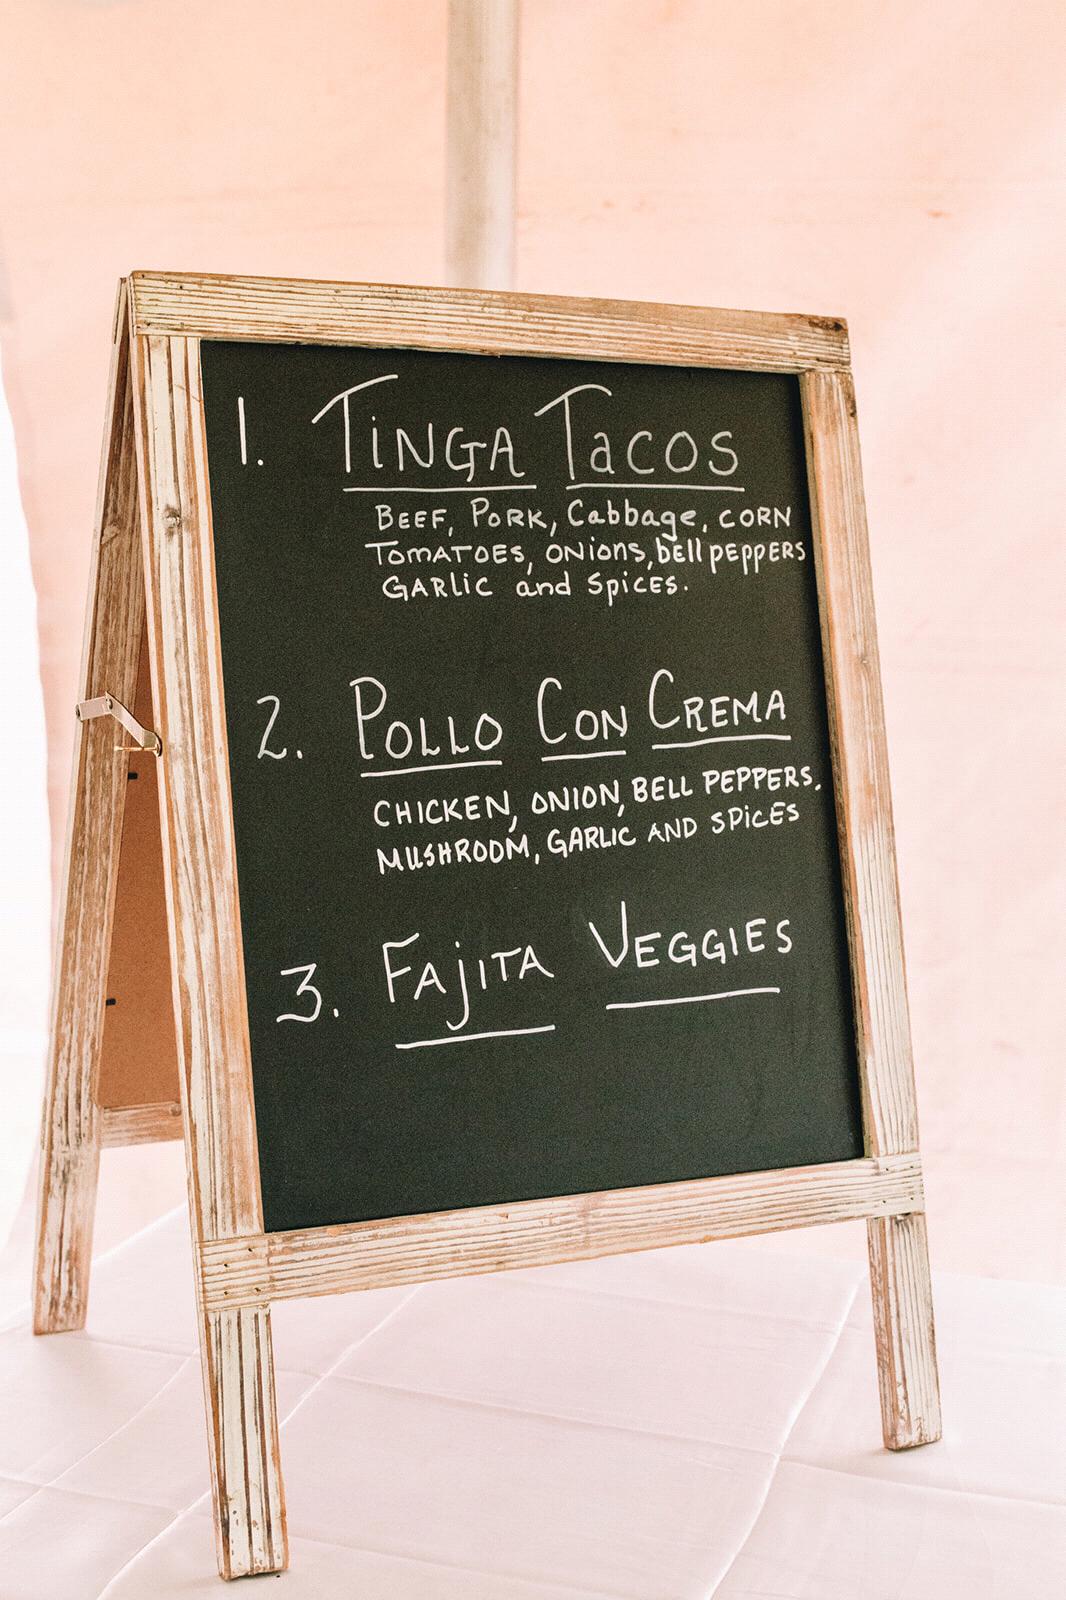 1. TiNGA TacoS
BEEF, PORK, Cabbage, CORN
TOMATOES, ONiONs, bell pEPPERS
GARLiC and SpiCES.
2. POLLO CON CREMA
CHICKEN, ONION, BELL PEPPERS,
MUSHROOM, GARLIC AND SPiCES
3. FAjITA VEGGIES